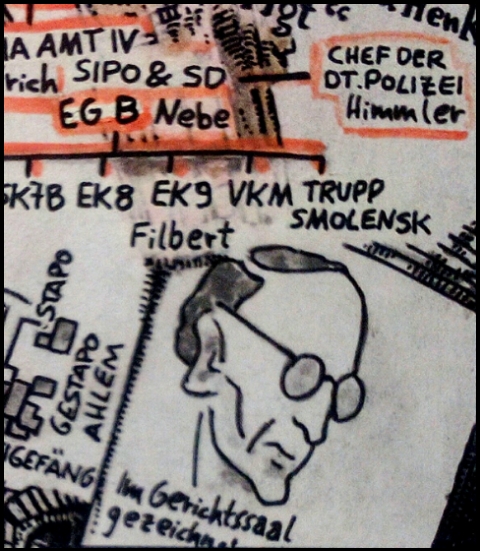 AMT IV
SIPO & SD
EG B Nebe
CHEF DER
DT. POLIZEI
Himmler
SK7B EK8 EK9 VKM TRUPP
SMOLENSK
Filbert
STAPO
GESTAPO
AHLEM
GEFÄNG
Im Gerichtssaal
gezeichnet